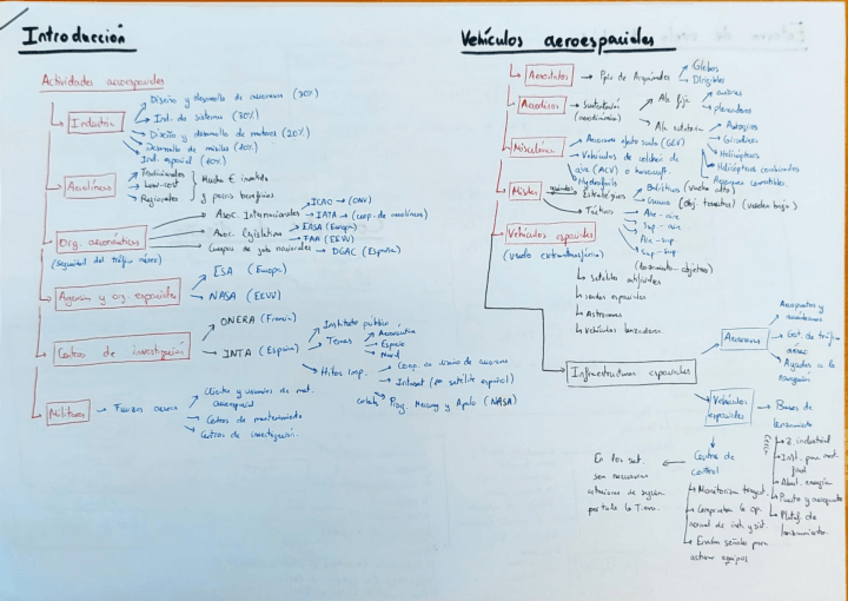 Introducción
Actividades aeroespaciales
Industria
Diseño y desarrollo de aeronaves (30%)
Ind. de sistemas (30%)
Diseño y desarrollo de motores (20%)
Desarrollo de misiles (10%)
Ind. espacial (10%)
Aerolíneas
Tradicionales
Low-cost
Regionales
Mucho € invertido
y pocos beneficios
Org. aeronáuticos
(Seguridad del tráfico aéreo)
Asoc. Internacionales
ICAO → (ONU)
IATA → (coop. de aerolíneas)
Asoc. Legislativas
EASA (Europa)
FAA (EEUU)
Cuerpos de gob nacionales → DGAC (España)
Agencias y org. espaciales
ESA (Europa)
NASA (EEUU)
Centros de investigación
ONERA (Francia)
INTA (España)
Instituto público
Temas
Aeronáutica
Espacio
Hitos imp.
Coop. en diseño de aeronaves
Intasat (1er satélite español)
colab.
Prog. Mercury y Apolo (NASA)
Militares → Fuerzas aéreas
Clientes y usuarios de mat.
aeroespacial
Centros de mantenimiento
Centros de investigación.
Vehículos aeroespaciales
Aerostatos → Ppio de Arquímedes
Globos
Dirigibles
Aerodinos → Sustentación
(aerodinámica)
Ala fija
aviones
planeadores
Ala rotatoria
Autogiros
Girodinos
Helicópteros
Helicópteros combinados
Aeronaves convertibles.
Miscelánea
Aeronaves efecto suelo (GEV)
Vehículos de colchón de
aire (ACV) o hovercraft.
Hydrofoils
Misiles
guiados
Estratégicos
Balísticos (vuelo alto)
Crucero (obj. terrestres) (vuelan bajo)
Tácticos
Aire - aire
Sup - aire
Aire - sup
Sup - sup
(lanzamiento - objetivo)
Vehículos espaciales
(vuelo extraatmosférico)
satélites artificiales
sondas espaciales
Astronaves
Vehículos lanzadores
Infraestructuras espaciales
Aeronaves
Aeropuertos y
aeródromos
Gest. de tráfico
aéreo
Ayudas a la
navegación
Vehículos
espaciales
Bases de
lanzamiento
Cerca
Z. industrial
Abast. energía
Puerto y aeropuerto
Plataf. de
lanzamiento.
Centros de
control
Monitorizan trayect.
Comprueban la op.
normal de inst. y sist.
Envían señales para
activar equipos
En los sat.
son necesarias
estaciones de seguim
por toda la Tierra.